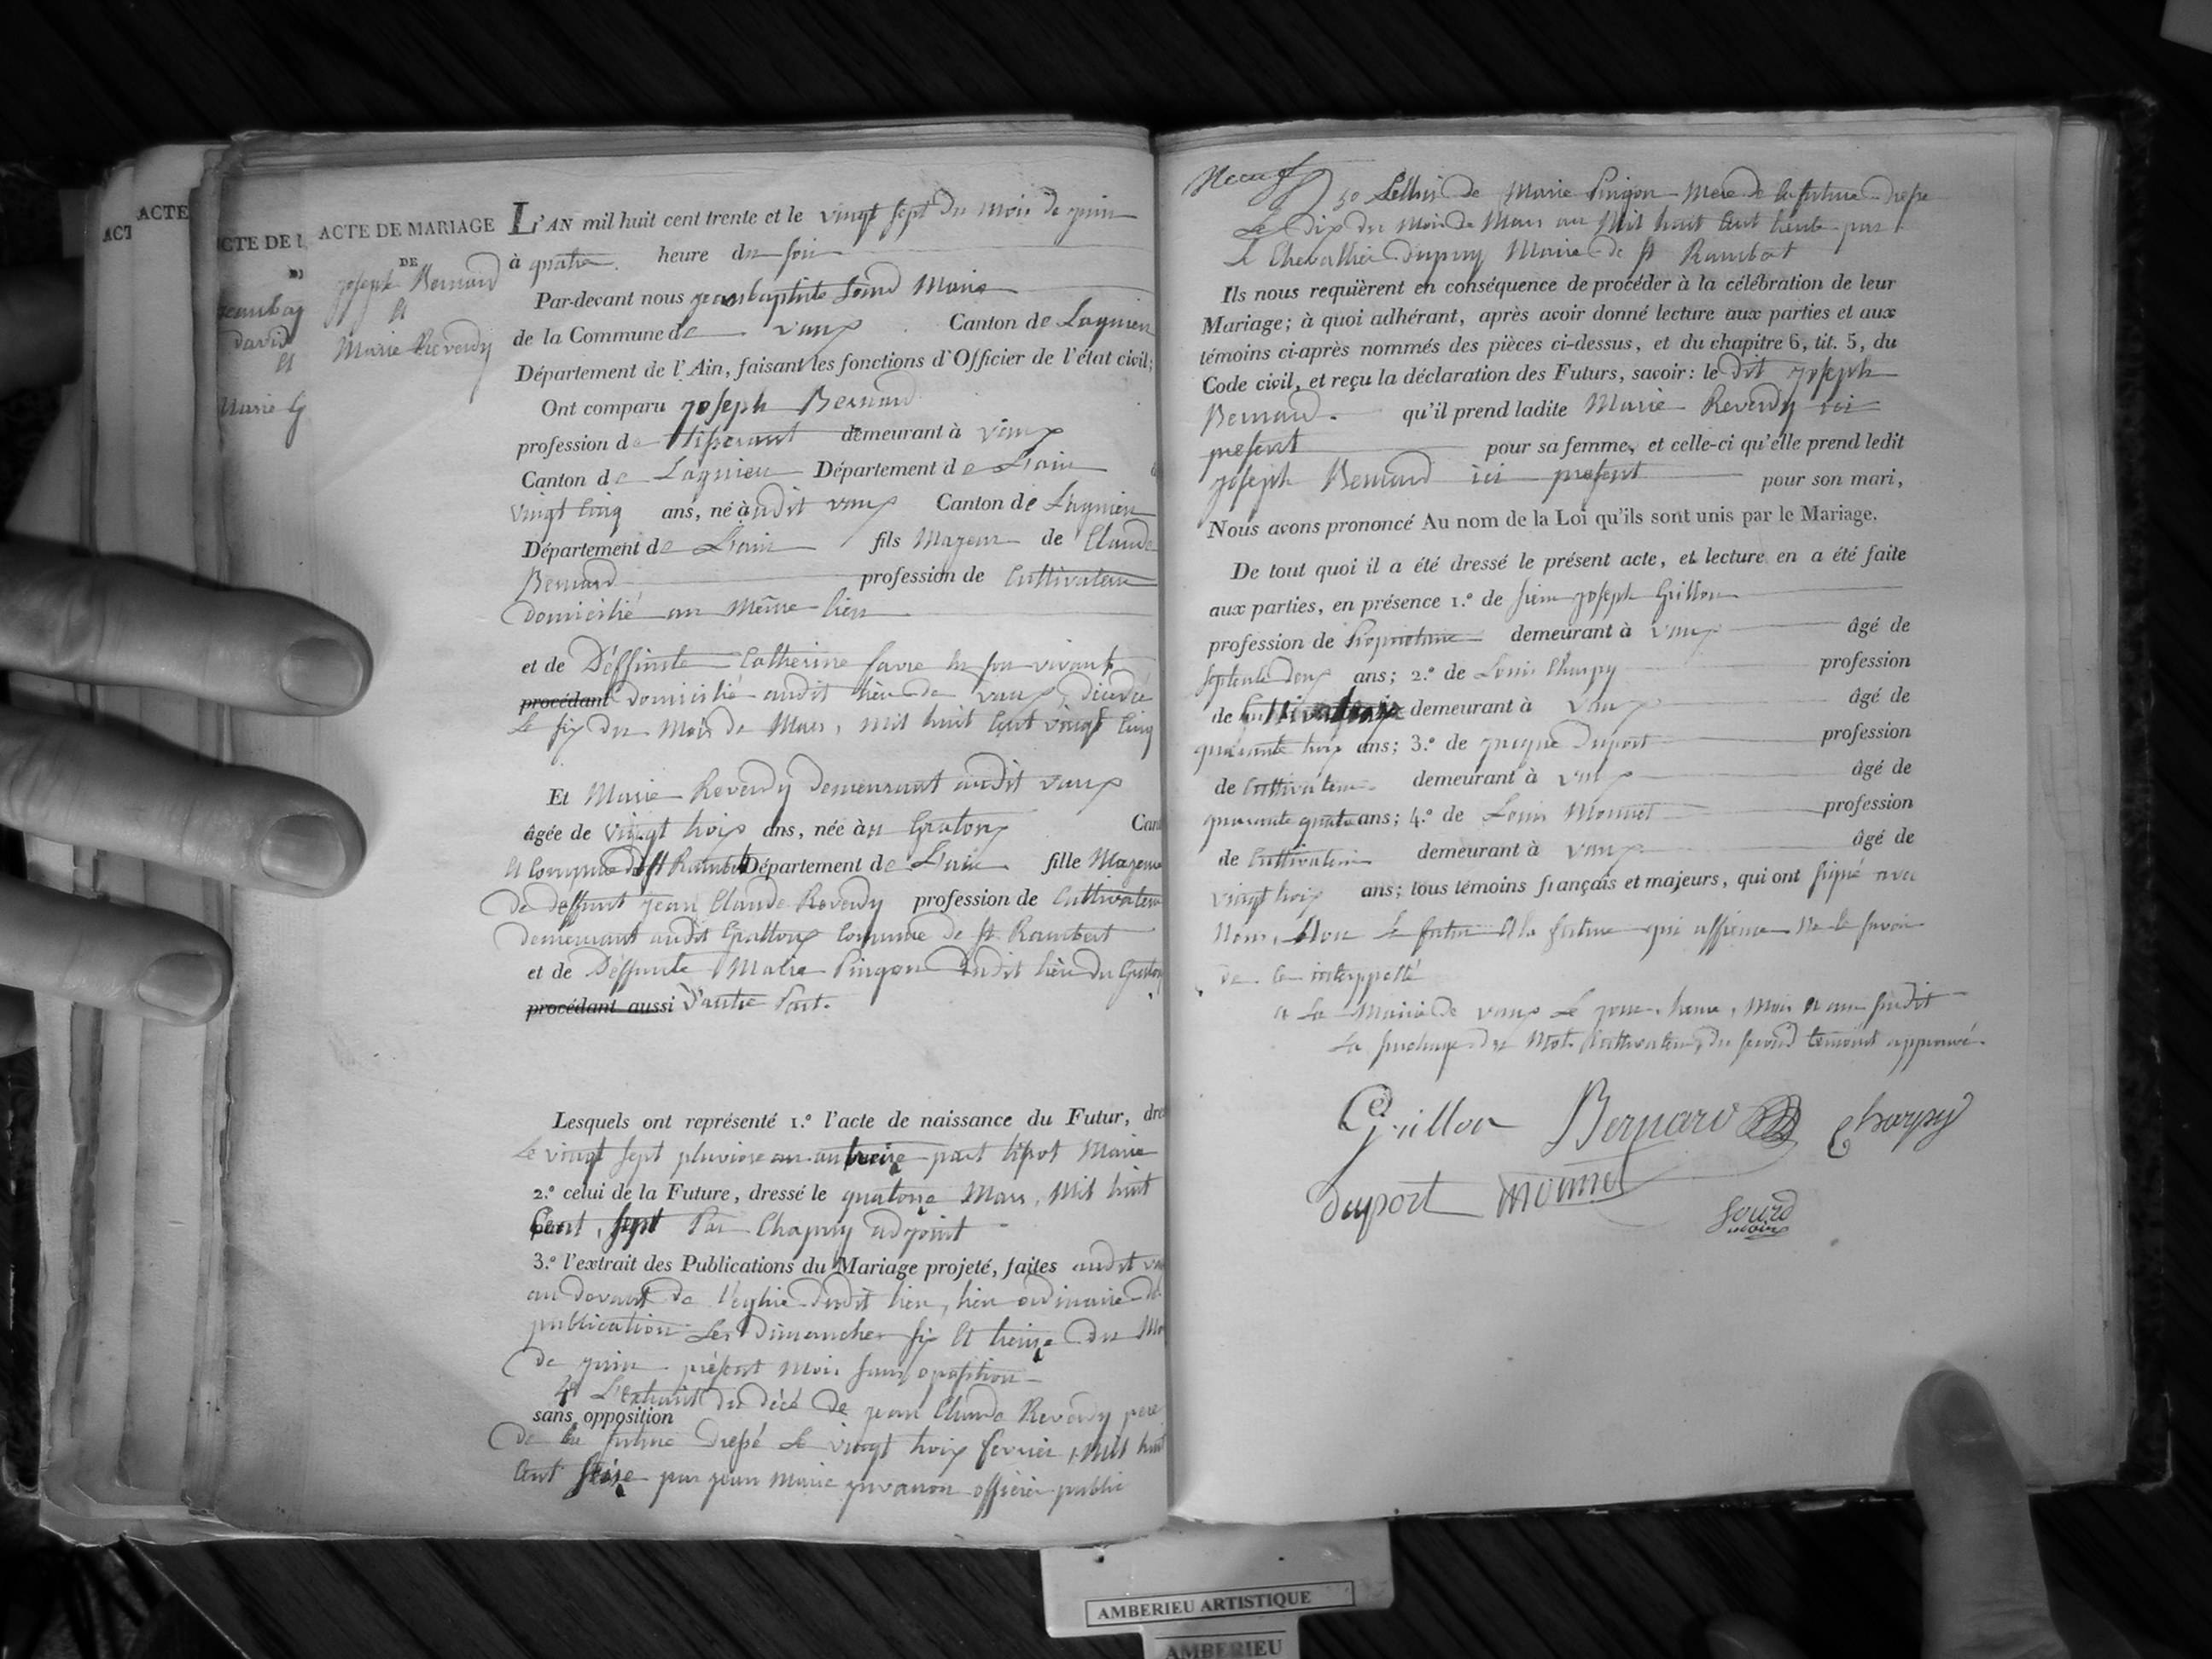 ACTE
ACT
ACTE DE
Marie G
ACTE DE MARIAGE
DE
joseph Bernard
et
Marie Reverdy
L'AN mil huit cent trente et le vingt sept du mois de juin
à quatre heure du soir
Par-devant nous jeanbaptiste Sourd Maire
de la Commune de vaux Canton de Lagnieu
Département de l'Ain, faisant les fonctions d'Officier de l'état civil;
Ont comparu joseph Bernard
profession de tisserant demeurant à vaux
Canton de Lagnieu Département de L'ain
vingt cinq ans, né audit vaux Canton de Lagnieu
Département de L'ain fils Majeur de Claude
Bernard profession de Cultivateur
domicilié au même lieu
et de Déffunte Catherine favre en son vivant
procédant domicilié audit lieu de vaux, décédé
le six du mois de Mars, mil huit Cent vingt Cinq
Et Marie Reverdy demeurant audit vaux
âgée de vingt trois ans, née au Gratoux Can
et Commune de st Rambert Département de L'ain fille Majeure
de deffunt jean Claude Reverdy profession de Cultivateur
demeurant audit Grattoux Commune de st Rambert
et de Déffunte Marie Pingon dudit lieu du Gratoux
procédant aussi d'autre Part.
Lesquels ont représenté 1.º l'acte de naissance du Futur, dre
Le vingt sept pluviose an treize part tipot Maire
2.º celui de la Future, dressé le quatorze Mars, Mil huit
Cent, sept Par Chapuy adjoint
3.º l'extrait des Publications du Mariage projeté, faites audit vaux
au devant de l'eglise dudit lieu, lieu ordinaire de
publication Les Dimanches six et treize du Mo
de juin présent mois sans oposition
4º L'extrait du décé de jean Claude Reverdy pere
sans opposition
de la future dressé Le vingt trois fevrier, mil huit
Cent seize par jean Marie juvanon officier public
Neuf
5º Celluis de Marie Pingon Mere de la future dressé
Le dix du Mois de Mars an Mil huit Cent trente par
Le Chevallier dupuy Maire de st Rambert
Ils nous requièrent en conséquence de procéder à la célébration de leur
Mariage; à quoi adhérant, après avoir donné lecture aux parties et aux
témoins ci-après nommés des pièces ci-dessus, et du chapitre 6, tit. 5, du
Code civil, et reçu la déclaration des Futurs, savoir: le dit joseph
Bernard qu'il prend ladite Marie Reverdy ici
present pour sa femme, et celle-ci qu'elle prend ledit
joseph Bernard ici present pour son mari,
Nous avons prononcé Au nom de la Loi qu'ils sont unis par le Mariage.
De tout quoi il a été dressé le présent acte, et lecture en a été faite
aux parties, en présence 1.º de sieur joseph Grillon
profession de Propriétaire demeurant à vaux âgé de
septente deux ans; 2.º de Louis Charpy profession
de Cultivateur demeurant à vaux âgé de
quarante trois ans; 3.º de jacque Duport profession
de Cultivateur demeurant à vaux âgé de
quarante quatre ans; 4.º de Louis Monnet profession
de Cultivateur demeurant à vaux âgé de
vingt trois ans; tous témoins français et majeurs, qui ont signé avec
Nous, Non le futur et la future qui affirme Ne le savoir
de ce interppellé
a La Mairie de vaux Le jour, heure, Mois et an susdit
La surcharge du Mot Cultivateur, du second temoint approuvé.
Grillon Bernard Charpy
Duport Monnet
Sourd
maire
AMBERIEU ARTISTIQUE
AMBERIEU